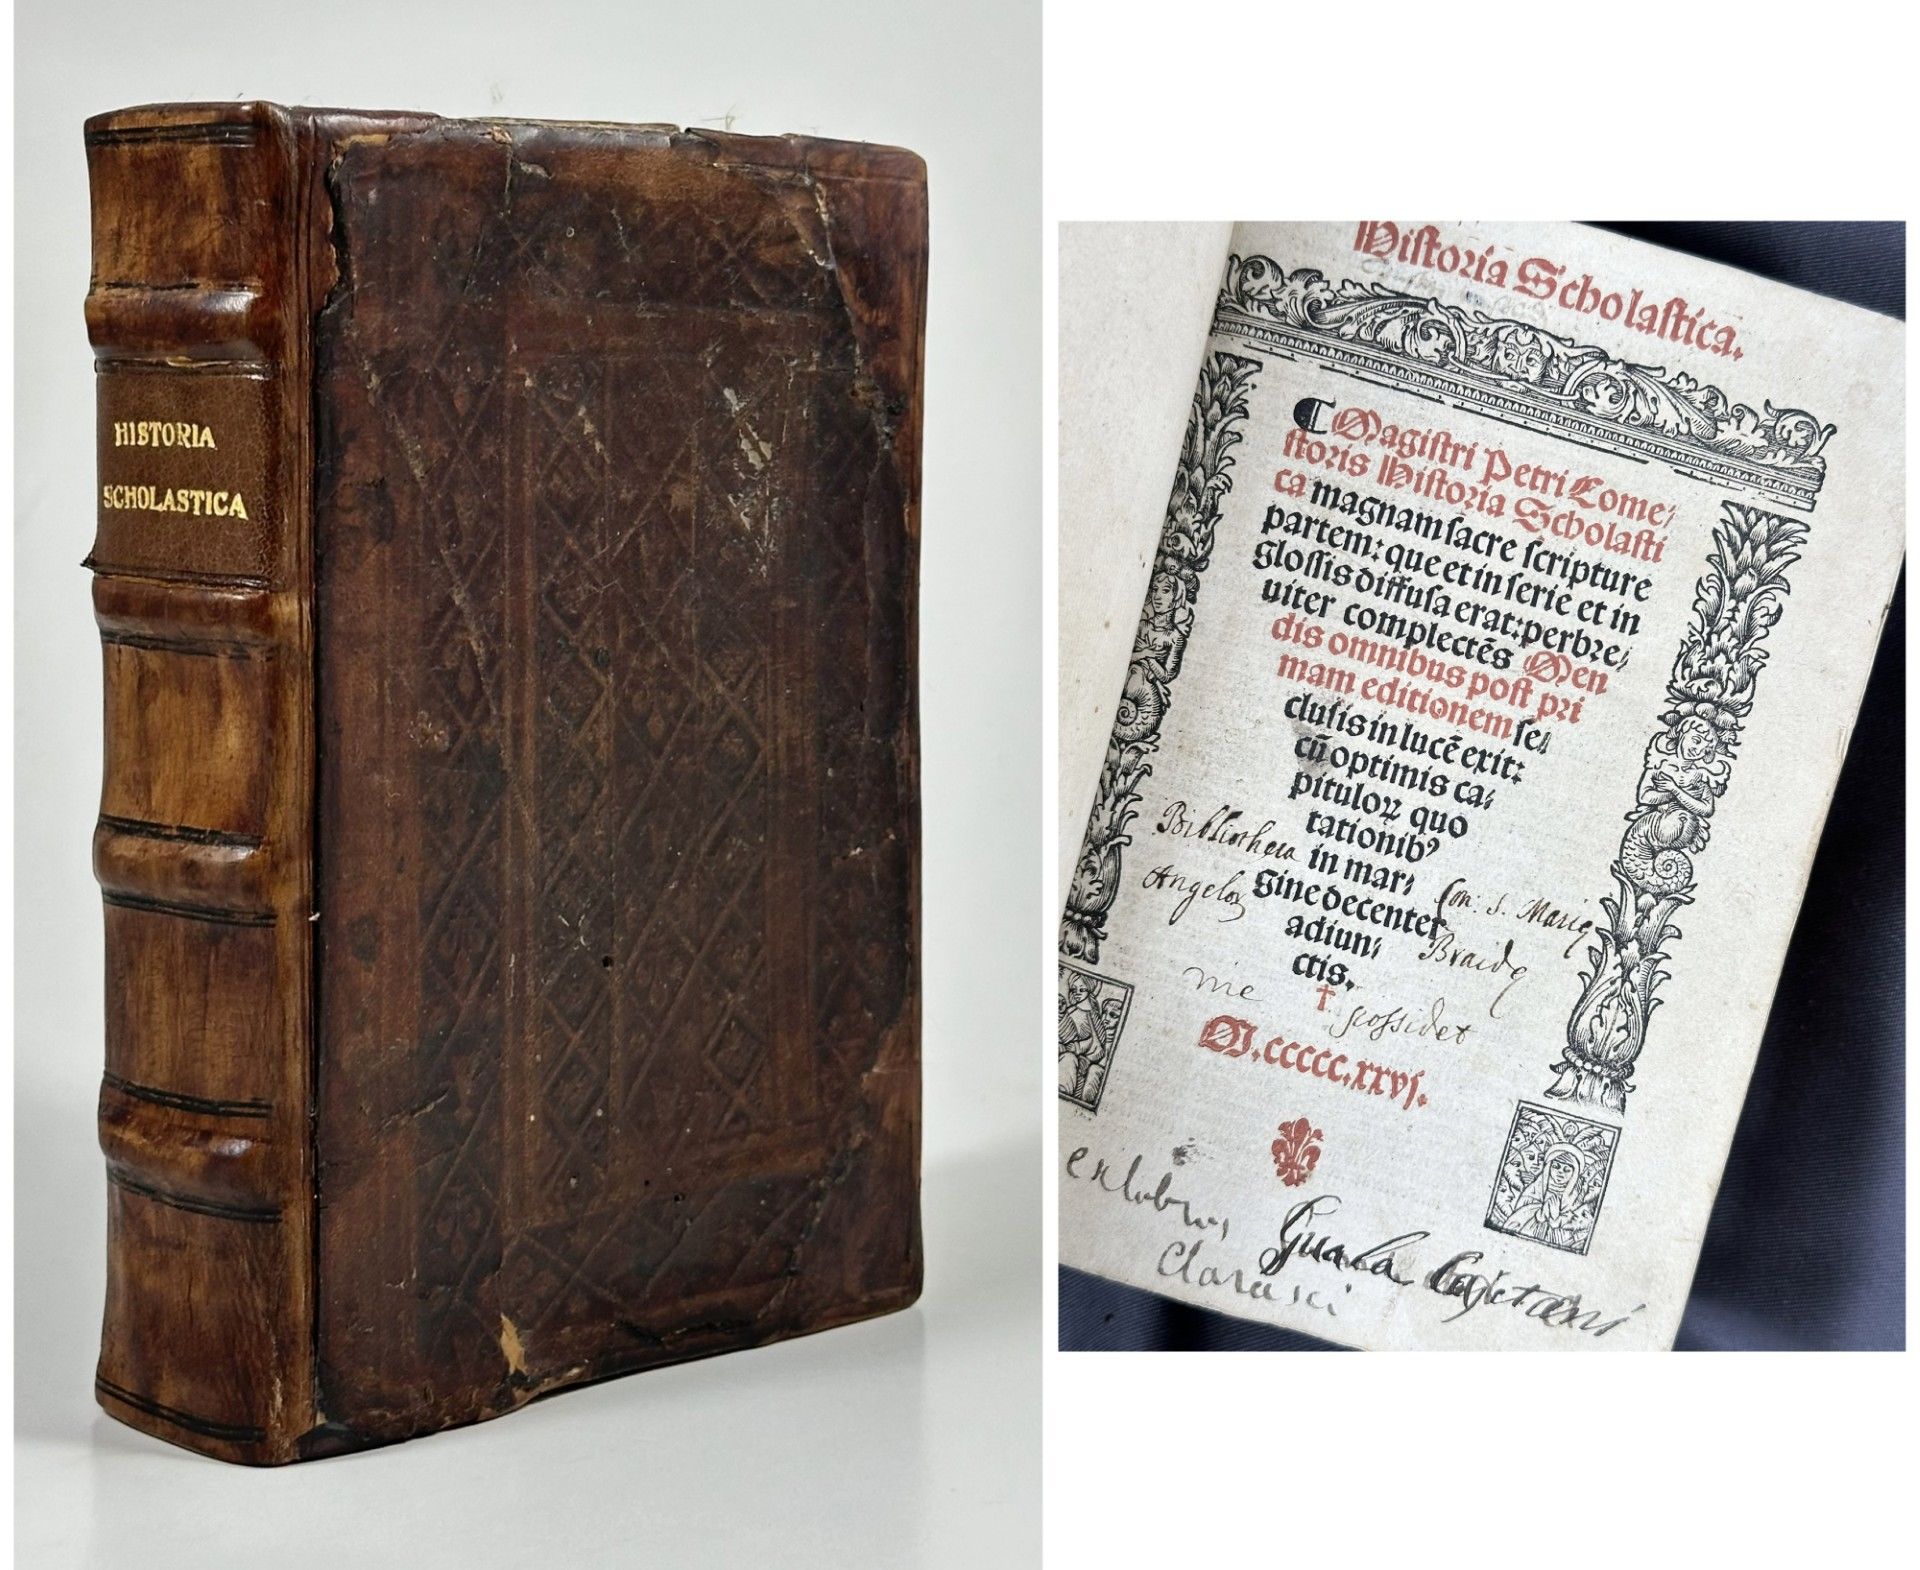 HISTORIA
SCHOLASTICA
Historia Scholastica.
¶ Magistri Petri Come⸗
storis Historia Scholasti
ca magnam sacre scripture
partem: que et in serie et in
glossis diffusa erat: perbre⸗
uiter complectēs Men
dis omnibus post pri
mam editionem se⸗
clusis in lucē exit:
cū optimis ca⸗
pituloꝝ quo
tationibꝰ
in mar⸗
gine decenter
adiun⸗
ctis.
†
M.CCCCC.xxvj.
Bibliotheca Con: S. Marię
Angeloꝝ Braidę
me possidet
ex libris
Guala Cajetani